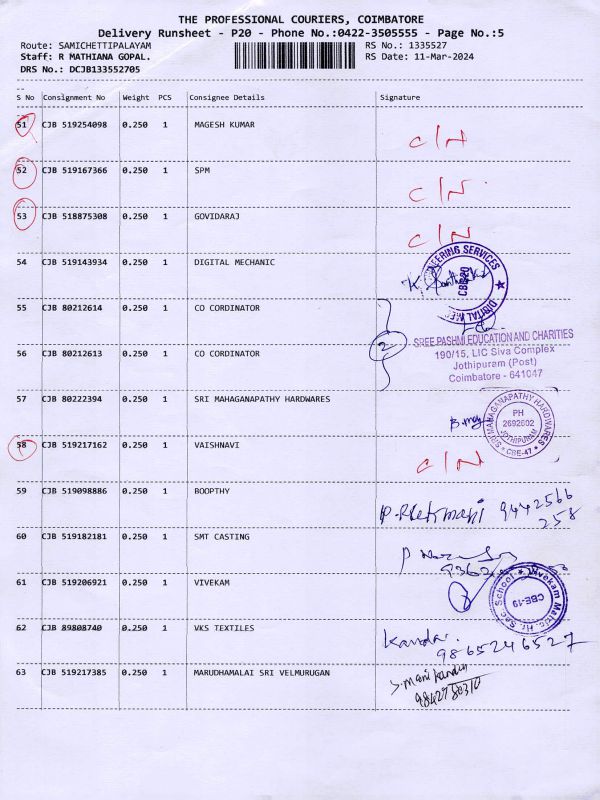 THE PROFESSIONAL COURIERS, COIMBATORE
Delivery Runsheet - P20 - Phone No.:0422-3505555 - Page No.:5
Route: SAMICHETTIPALAYAM RS No.: 1335527
Staff: R MATHIANA GOPAL. RS Date: 11-Mar-2024
DRS No.: DCJB133552705
S No Consignment No Weight PCS Consignee Details Signature
51 CJB 519254098 0.250 1 MAGESH KUMAR C/N
52 CJB 519167366 0.250 1 SPM C/N
53 CJB 518875308 0.250 1 GOVIDARAJ C/N
54 CJB 519143934 0.250 1 DIGITAL MECHANIC
ENGINEERING SERVICES
55 CJB 80212614 0.250 1 CO CORDINATOR
2
SREE PASHMI EDUCATION AND CHARITIES
190/15, LIC Siva Complex
Jothipuram (Post)
Coimbatore - 641047
56 CJB 80212613 0.250 1 CO CORDINATOR
57 CJB 80222394 0.250 1 SRI MAHAGANAPATHY HARDWARES
SRI MAHAGANAPATHY HARDWARES
PH
2692602
JOTHIPURAM
CBE-47
58 CJB 519217162 0.250 1 VAISHNAVI C/N
59 CJB 519098886 0.250 1 BOOPTHY
9442566
258
60 CJB 519182181 0.250 1 SMT CASTING
61 CJB 519206921 0.250 1 VIVEKAM
Vivekam Matric. Hr. Sec. School
CBE-19
62 CJB 89808740 0.250 1 VKS TEXTILES
9865246527
63 CJB 519217385 0.250 1 MARUDHAMALAI SRI VELMURUGAN
S. Mani kandan